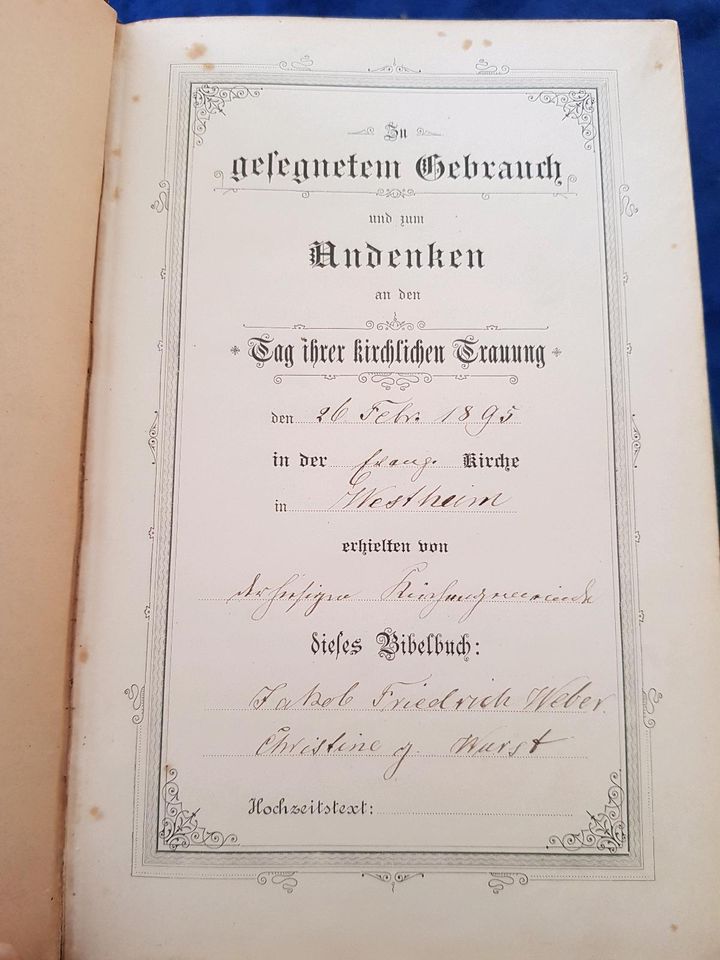 Zu
gesegnetem Gebrauch
und zum
Andenken
an den
Tag ihrer kirchlichen Trauung
den 26 Febr. 1895
in der Evang. Kirche
in Westheim
erhielten von
der hiesigen Kirchengemeinde
dieses Bibelbuch:
Jakob Friedrich Weber
Christine g. Wurst
Hochzeitstext: